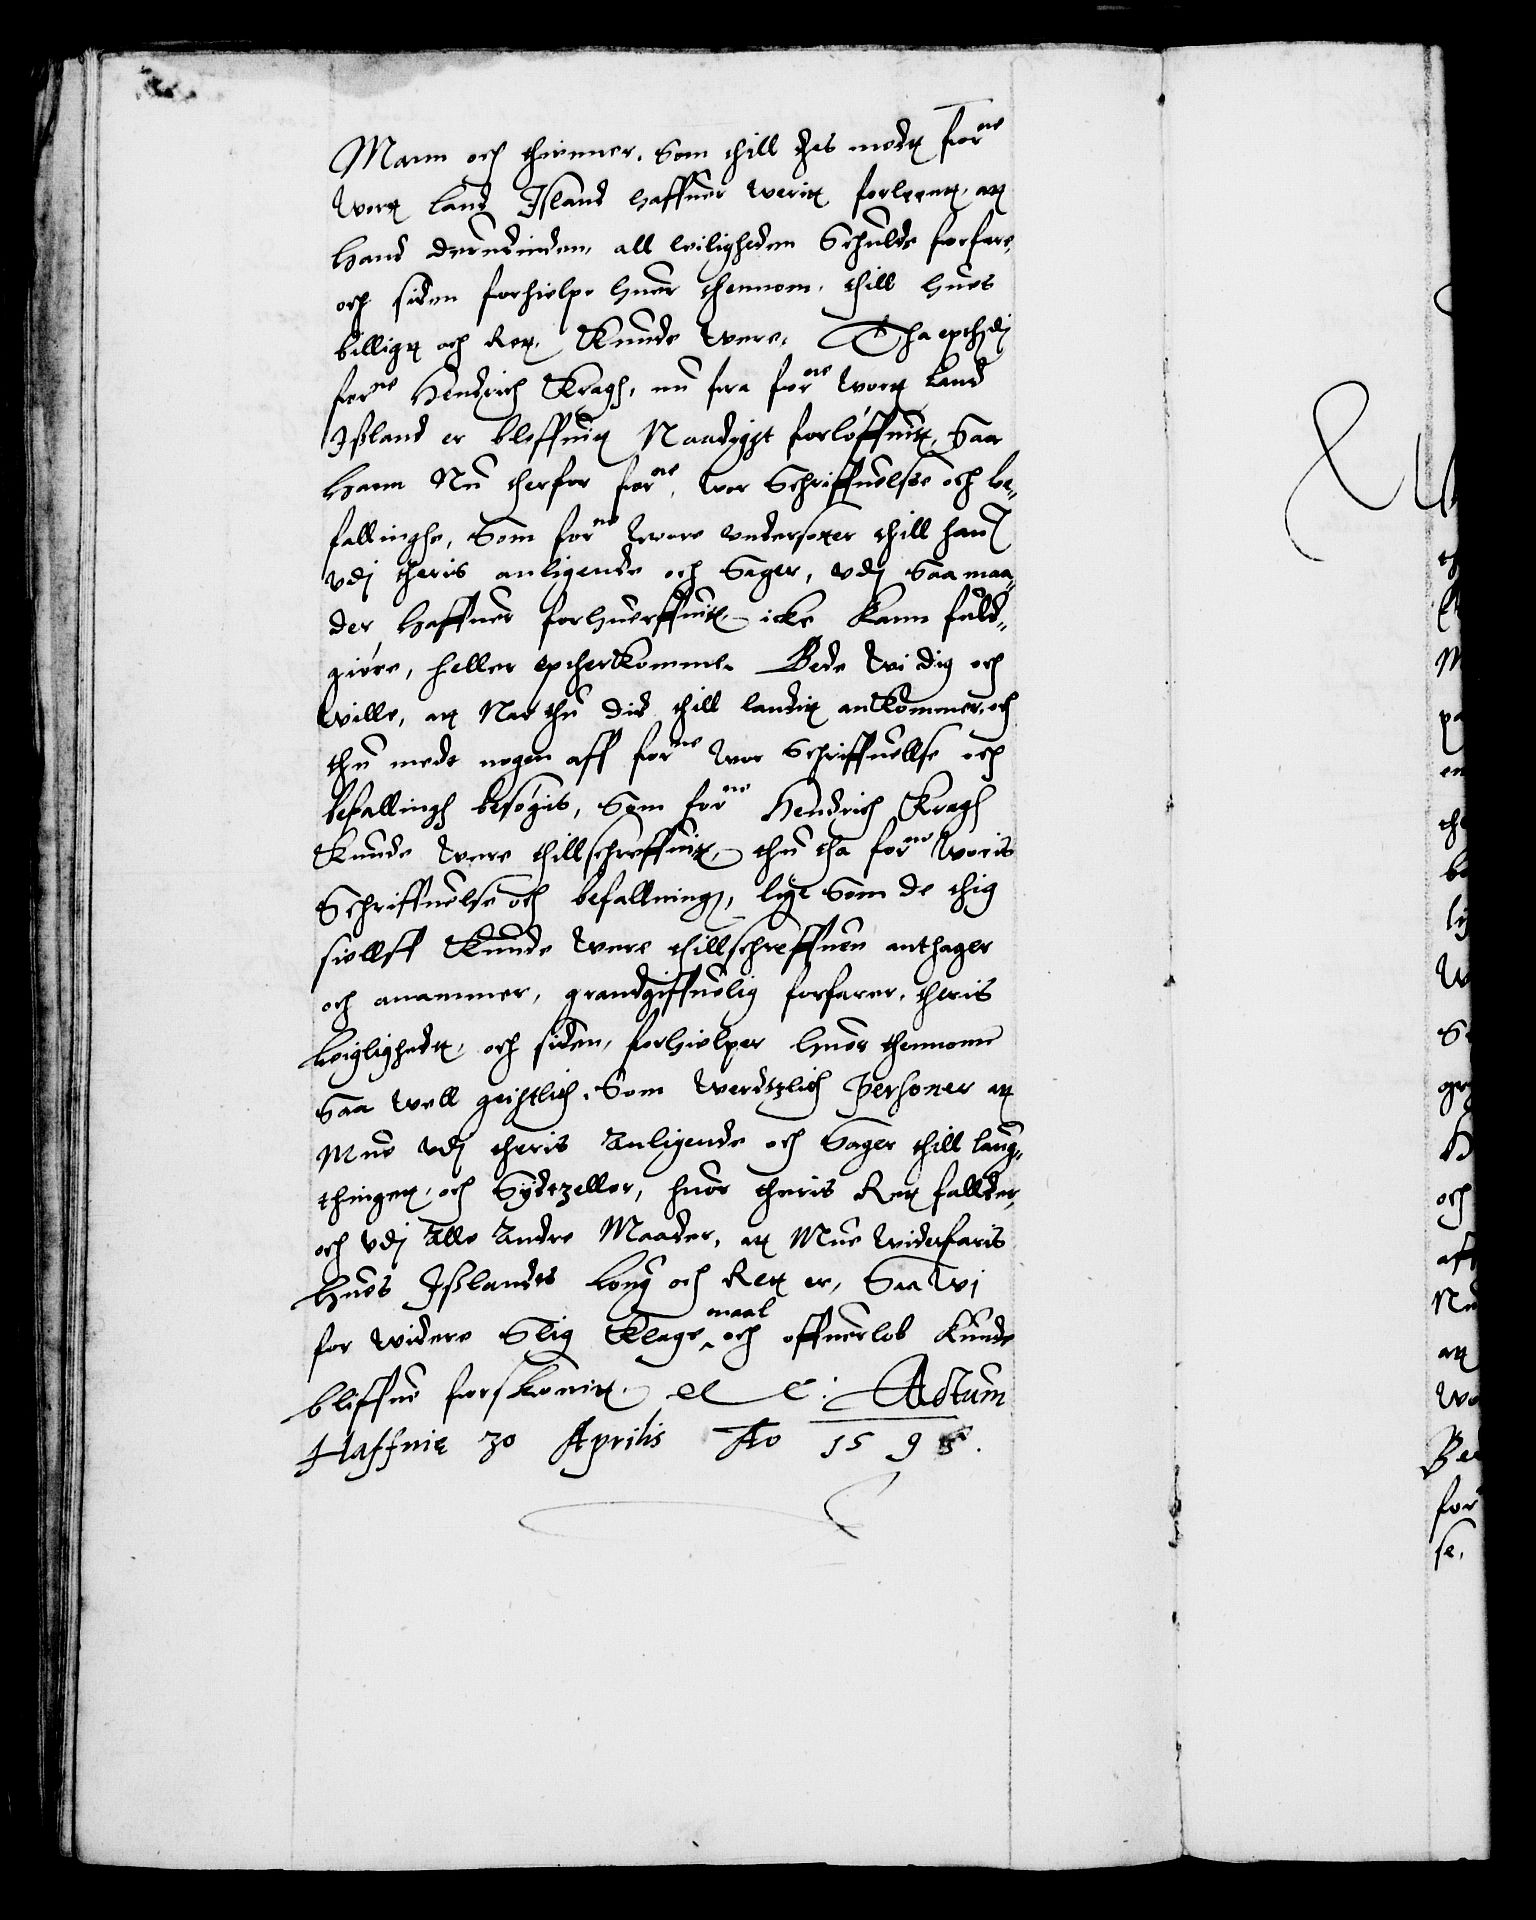 Mann och thiennere, Som thill thes medt forne
Wortt land Island haffuer werit forlent, att
hand derudinden, all leiligheden Schulde forfare,
och siden forhielpe huer thennom, thill hues
billigt och Rett, Kunde Were, Tha epthj di
forne Hendrich Kragh, nu fra forne wortt Land
Ißland er bleffuitt Naadigst forløffuitt, Saa
hann Nu therfor forne, wor Schriffuelsse och be„
fallinghe, Som forne Wore Undersotter thill hans
vdj theris anligende och Sager, vdj Saa maa„
der haffuer forhuerffuitt, icke kann fuld„
giøre, heller epther komme. Bede Wi dig och
Wille, att Nar thu did thill landitt ankommer, och
thu mede nogen aff forne wor Schriffuellse och
befallingh besøgis, Som forne Hendrich Kragh
Kunde Were thillschreffuitt, thu tha forne Woris
Schriffuelse och befallning, lige Som de thig
siellff Kunde Were thillschreffuen anthager
och anammer, grandgiffuelig forfarer, theris
leiglighedt, och siden, forhielper huer thennom
Saa well geistlich, Som Werdtzlich Personer att
Mue vdj theris Anligende och Sager thill laug„
thinget, och Sydtzeller, huor theris Rett falder,
och vdj Alle Andre Maader, att Mue widerfaris
hues Ißlandts loug och Rett er, Saa Wj
for widere Slig Klage maal och offuerlob Kunde
bliffue forskonitt. etc: Actum
Haffnie 30 Aprilis Ao 1595.